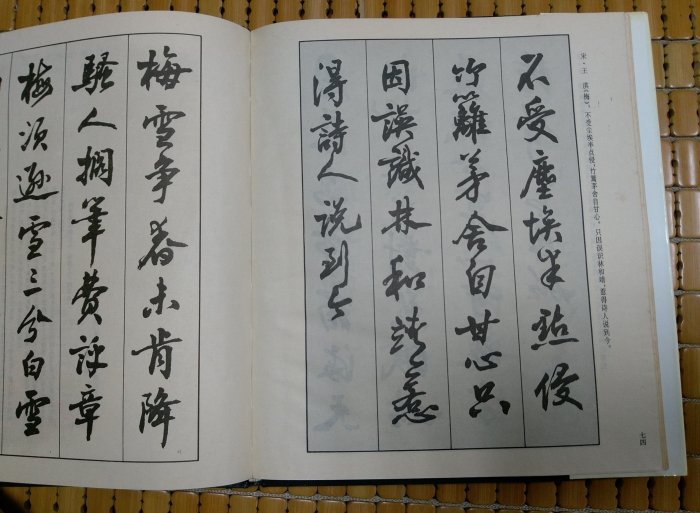 宋·王 淇《梅》。不受尘埃半点侵，竹篱茅舍自甘心。只因误识林和靖，惹得诗人说到今。
不受塵埃半點侵
竹籬茅舍自甘心只
因誤識林和靖惹
得詩人説到今
七四
梅雪争春未肯降
騷人擱筆費評章
梅須遜雪三分白雪